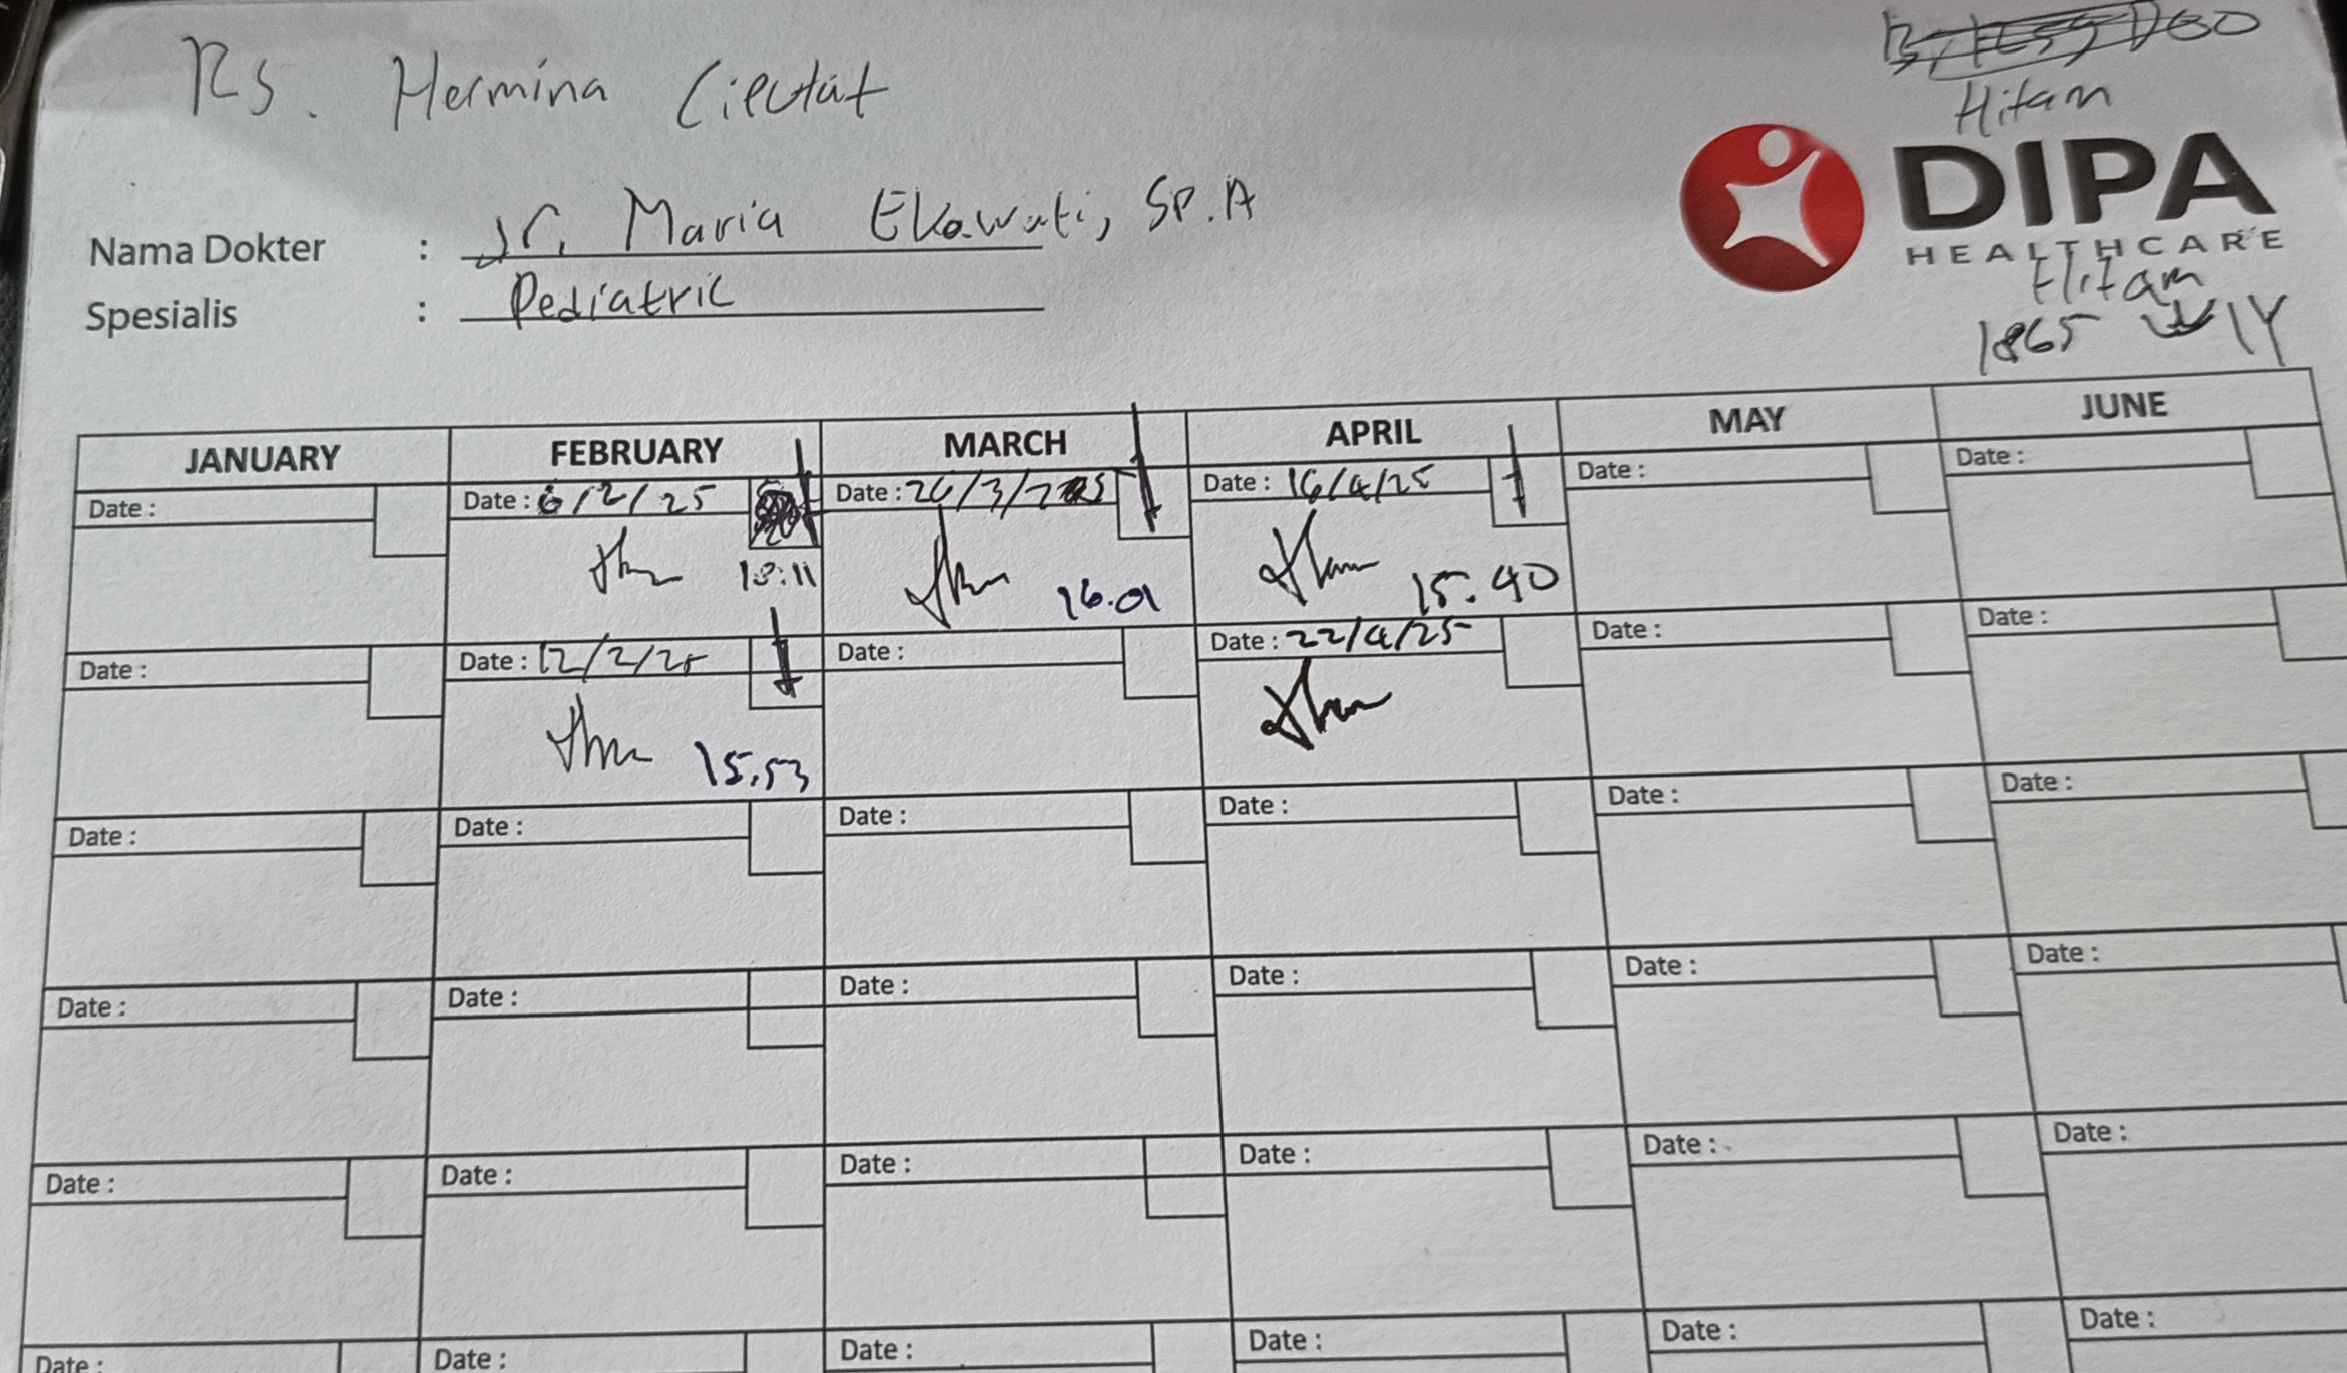 RS. Hermina Ciputat
Hitam
DIPA
HEALTHCARE
Nama Dokter : dr. Maria Ekawati, Sp.A
Spesialis : Pediatric
Hitam
1865
JANUARY FEBRUARY MARCH APRIL MAY JUNE
Date : Date : 6/2/25 Date : 26/3/2025 Date : 16/4/25 Date : Date :
16.01 15.40
Date : Date : 12/2/25 Date : Date : 22/4/25 Date : Date :
15.53
Date : Date : Date : Date : Date : Date :
Date : Date : Date : Date : Date : Date :
Date : Date : Date : Date : Date : Date :
Date : Date : Date : Date : Date : Date :